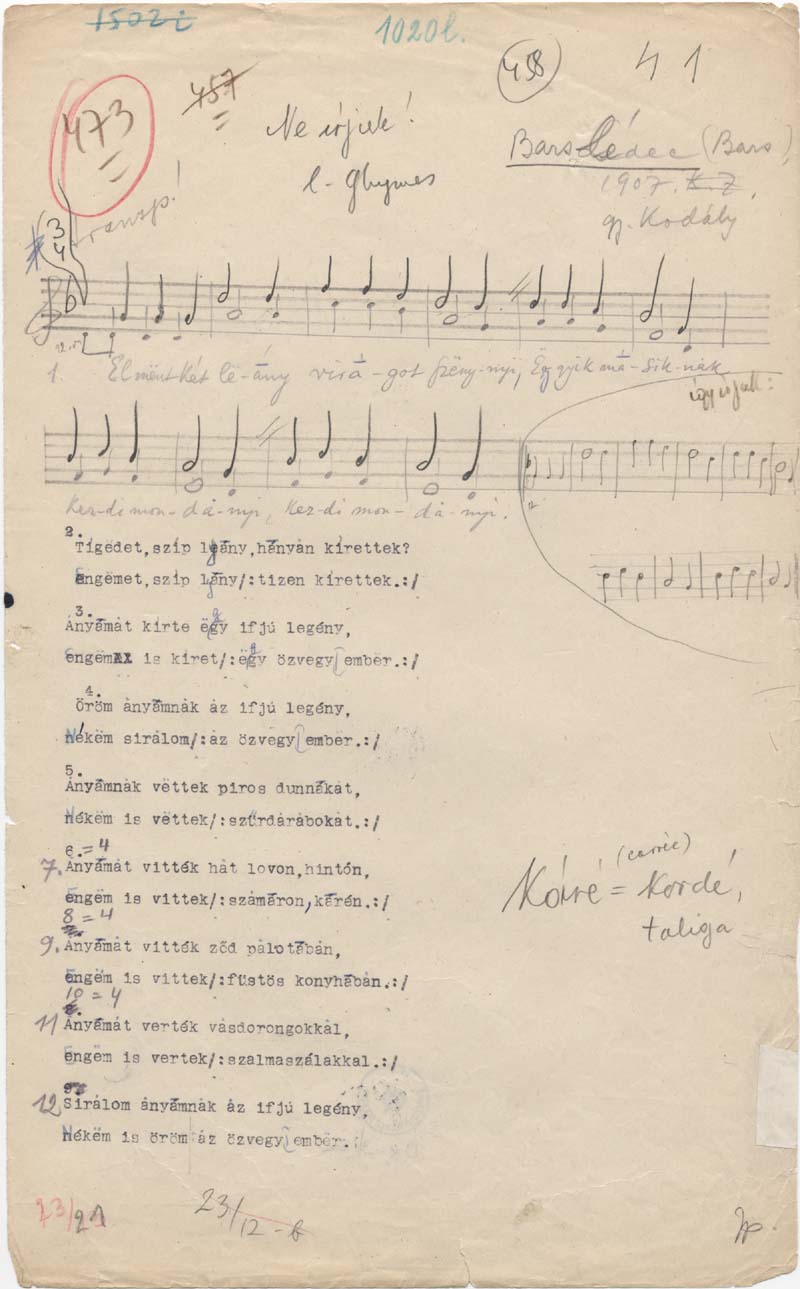 1502 i
1020 l.
458
41
473
457
Ne írjuk!
l. Ghymes
Barslédec (Bars)
1907. K. Z.
gy. Kodály
transp.!
3
4
1. Elmënt két lë-ány virá-got szëny-nyi, Ëggyik má-sik-nak
így írjuk:
kez-di mon-dá-nyi, kez-di mon-dá-nyi.
2.
Tigëdet,szíp lyány,hányán kírettek?
engëmet,szíp lyány/:tizen kírettek.:/
3.
Ányámát kírte ëgy ifjú legény,
engëm is kíret/:ëgy özvegy ember.:/
4.
Öröm ányámnák áz ifjú legény,
Nékëm sirálom/:áz özvegy ember.:/
5.
Ányámnák vëttek piros dunnákát,
Nékëm is vëttek/:szűrdárábokát.:/
6.=4
7. Ányámát vitték hát lovon,hintón,
engëm is vittek/:számáron,kárén.:/
8 = 4
9. Ányámát vitték ződ pálotábán,
engëm is vittek/:füstös konyhábán.:/
10 = 4
11 Ányámát verték vásdorongokkál,
engëm is vertek/:szalmaszálakkal.:/
12 Sirálom ányámnák áz ifjú legény,
Nékëm is öröm áz özvegy ember.:
(carrée)
Káré = Kordé,
taliga
23/21
23/12-6